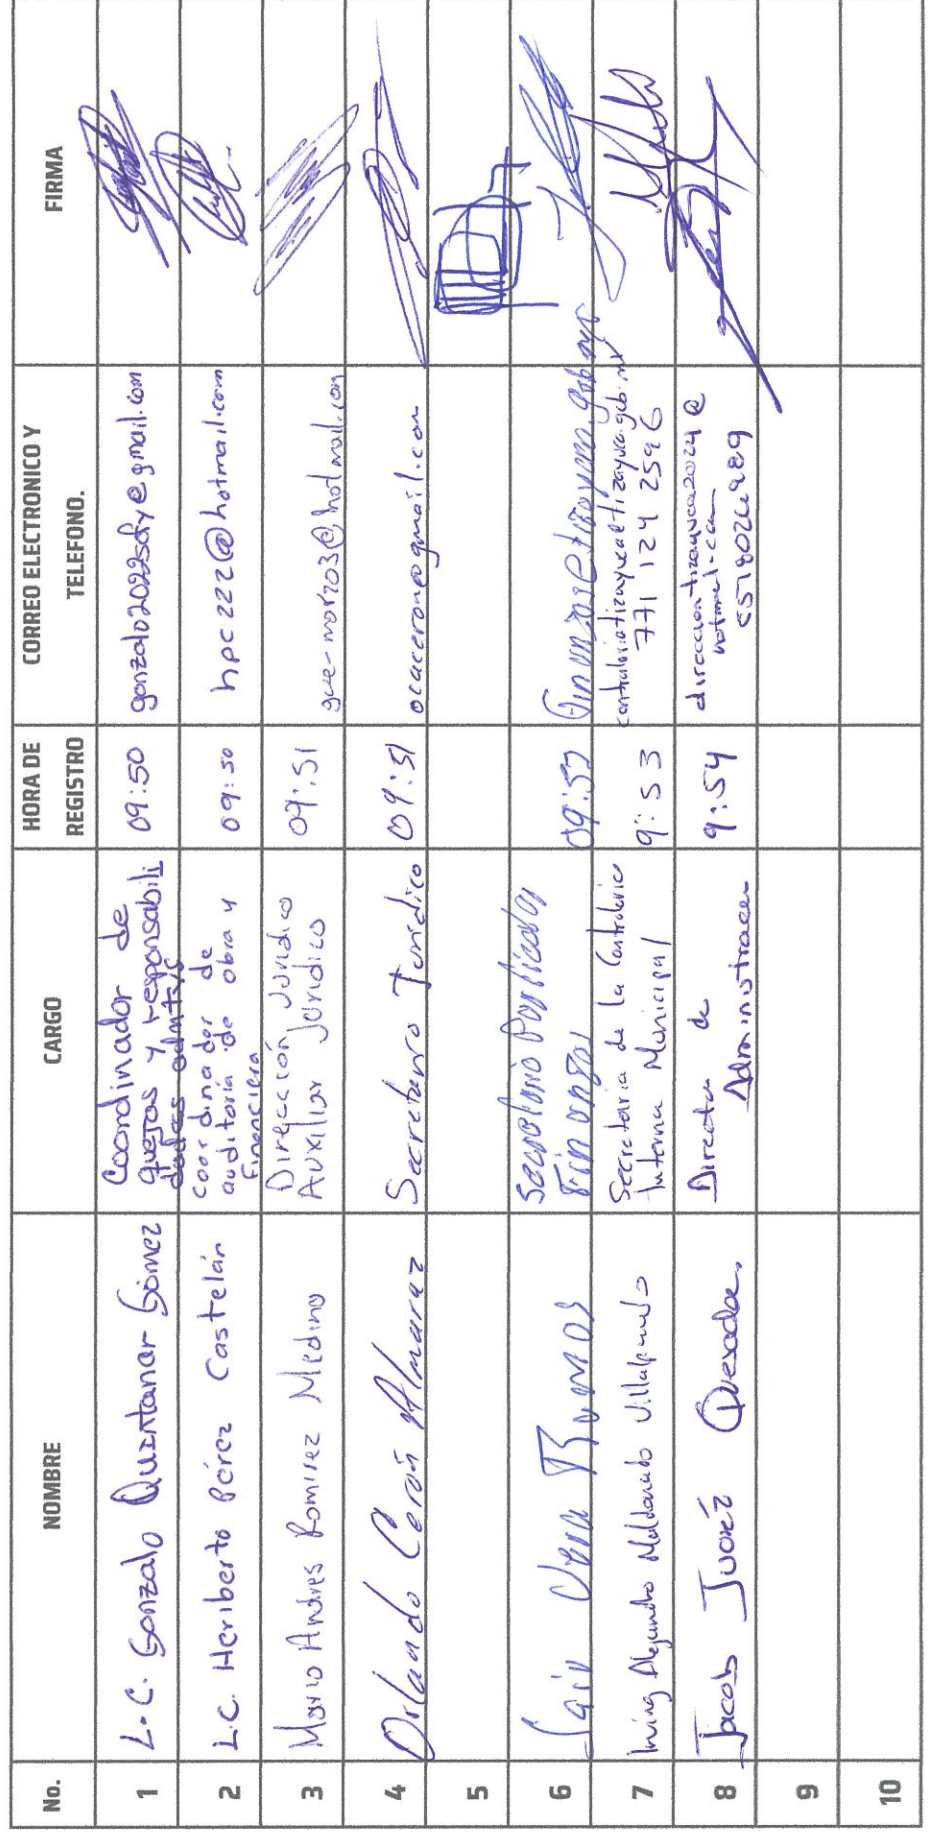 No. NOMBRE CARGO HORA DE REGISTRO CORREO ELECTRONICO Y TELEFONO. FIRMA
1 L.C. Gonzalo Quintanar Gómez
Coordinador de
quejas y responsabili
dades admtvs
09:50
gonzalo2022sfy@gmail.com
2 L.C. Heriberto Pérez Castelán
coordinador de
auditoría de obra y
financiera
09:50
hpc222@hotmail.com
3 Mario Andres Ramirez Medina
Dirección Juridico
Auxiliar Juridico
09:51
gue-mar203@hotmail.com
4 Orlando Cerón Almaraz
Secretario Juridico
09:51
ocaceron@gmail.com
5
6 Saiv Vera Ramos
Secretario Particular
Finanzas
09:52
finanzas@tizayuca.gob.mx
7 Irving Alejandro Maldonado Villalpando
Secretaria de la Contraloria
Interna Municipal
9:53
contraloriatizayuca@tizayuca.gob.mx
771 124 2596
8 Jacob Juárez Quesada.
Director de
Administracion
9:54
direcciontizayuca2024@
hotmail.com
5578026989
9
10